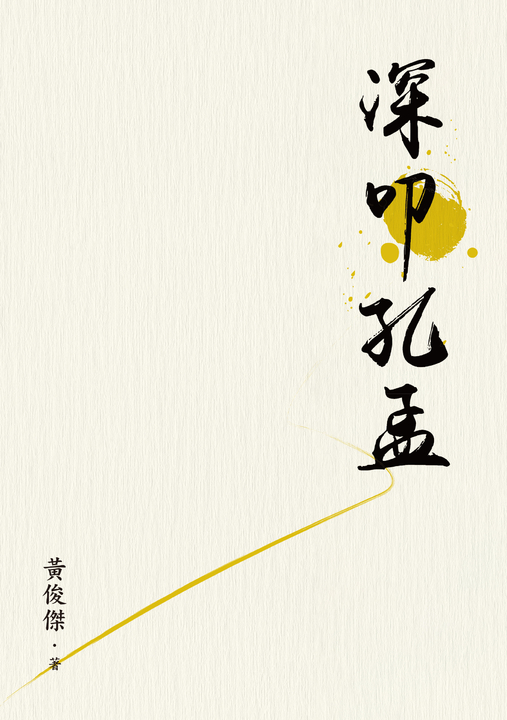 深叩孔孟
黃俊傑·著